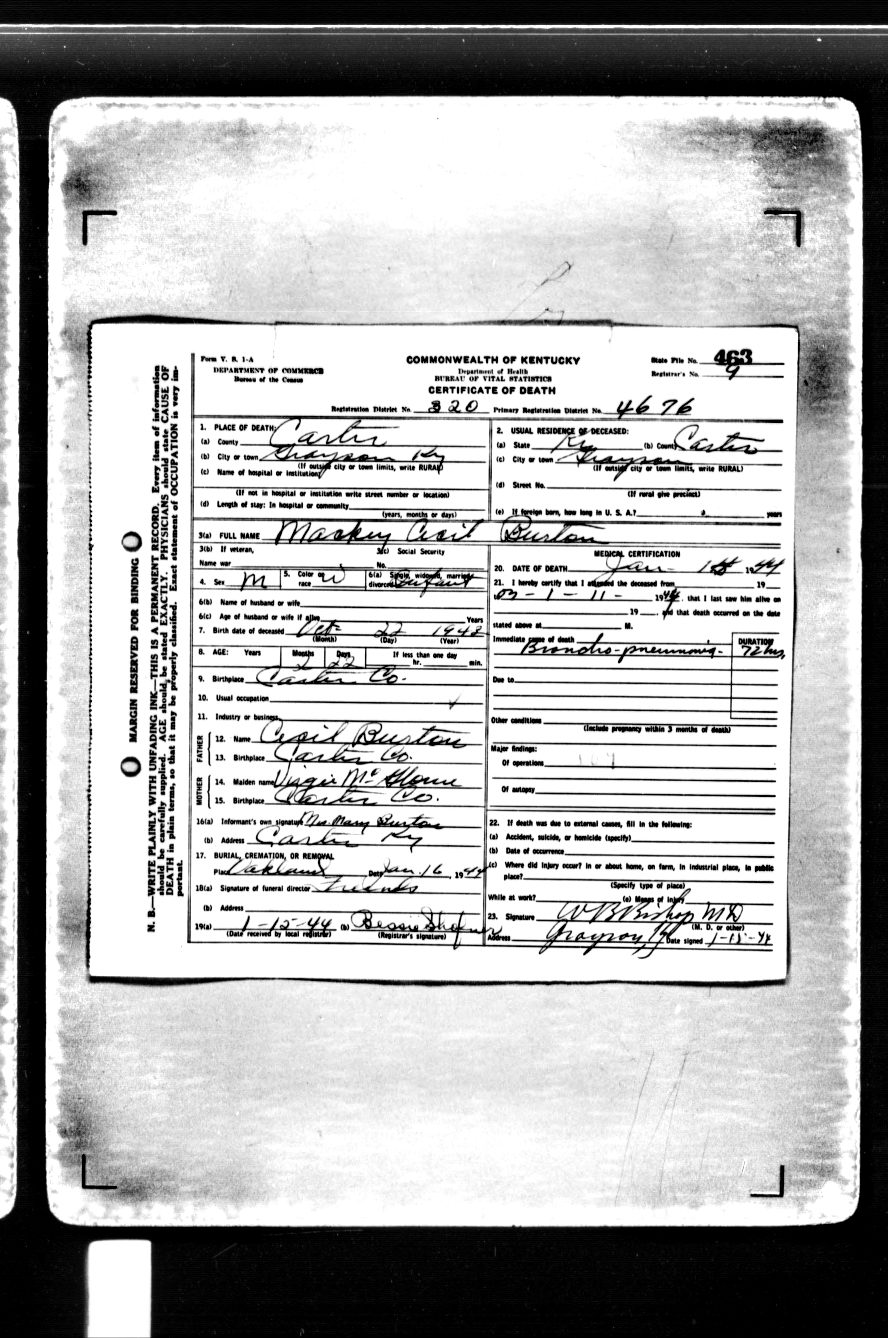 Form V. S. 1-A
DEPARTMENT OF COMMERCE
Bureau of the Census
COMMONWEALTH OF KENTUCKY
Department of Health
BUREAU OF VITAL STATISTICS
CERTIFICATE OF DEATH
State File No. 463
Registrar's No. 9
Registration District No. 320 Primary Registration District No. 4676
MARGIN RESERVED FOR BINDING
N. B.—WRITE PLAINLY WITH UNFADING INK—THIS IS A PERMANENT RECORD. Every item of information
should be carefully supplied. AGE should be stated EXACTLY. PHYSICIANS should state CAUSE OF
DEATH in plain terms, so that it may be properly classified. Exact statement of OCCUPATION is very im-
portant.
1. PLACE OF DEATH:
(a) County Carter
(b) City or town Grayson Ky
(If outside city or town limits, write RURAL)
(c) Name of hospital or institution
(If not in hospital or institution write street number or location)
(d) Length of stay: In hospital or community
(years, months or days)
2. USUAL RESIDENCE OF DECEASED:
(a) State Ky (b) County Carter
(c) City or town Grayson
(If outside city or town limits, write RURAL)
(d) Street No.
(If rural give precinct)
(e) If foreign born, how long in U. S. A.? years
3(a) FULL NAME Mackey Cecil Burton
3(b) If veteran,
Name war
3(c) Social Security
No.
4. Sex M 5. Color or race W 6(a) Single, widowed, married, divorced Infant
6(b) Name of husband or wife
6(c) Age of husband or wife if alive Years
7. Birth date of deceased Oct 22 1943
(Month) (Day) (Year)
8. AGE: Years Months 2 Days 22 If less than one day
hr. min.
9. Birthplace Carter Co.
10. Usual occupation
11. Industry or business
FATHER
12. Name Cecil Burton
13. Birthplace Carter Co.
MOTHER
14. Maiden name Virgie Mc
15. Birthplace Carter Co.
16(a) Informant's own signature Mrs Mary Burton
(b) Address Carter Ky
17. BURIAL, CREMATION, OR REMOVAL
Place Oakland Date Jan. 16, 1944
18(a) Signature of funeral director Friends
(b) Address
19(a) 1-15-44 (b) Bessie
(Date received by local registrar) (Registrar's signature)
MEDICAL CERTIFICATION
20. DATE OF DEATH Jan 1944
21. I hereby certify that I attended the deceased from 19
on - 1 - 11 - 1944, that I last saw him alive on
19 , and that death occurred on the date
stated above at M.
Immediate cause of death
Broncho-pneumonia-
DURATION
72 hrs
Due to
Other conditions
(Include pregnancy within 3 months of death)
Major findings:
Of operations
Of autopsy
22. If death was due to external causes, fill in the following:
(a) Accident, suicide, or homicide (specify)
(b) Date of occurrence
(c) Where did injury occur? In or about home, on farm, in industrial place, in public
place?
(Specify type of place)
While at work? (e) Means of injury
23. Signature W B Bishop MD
(M. D. or other)
Address Grayson, Ky Date signed 1-15-44